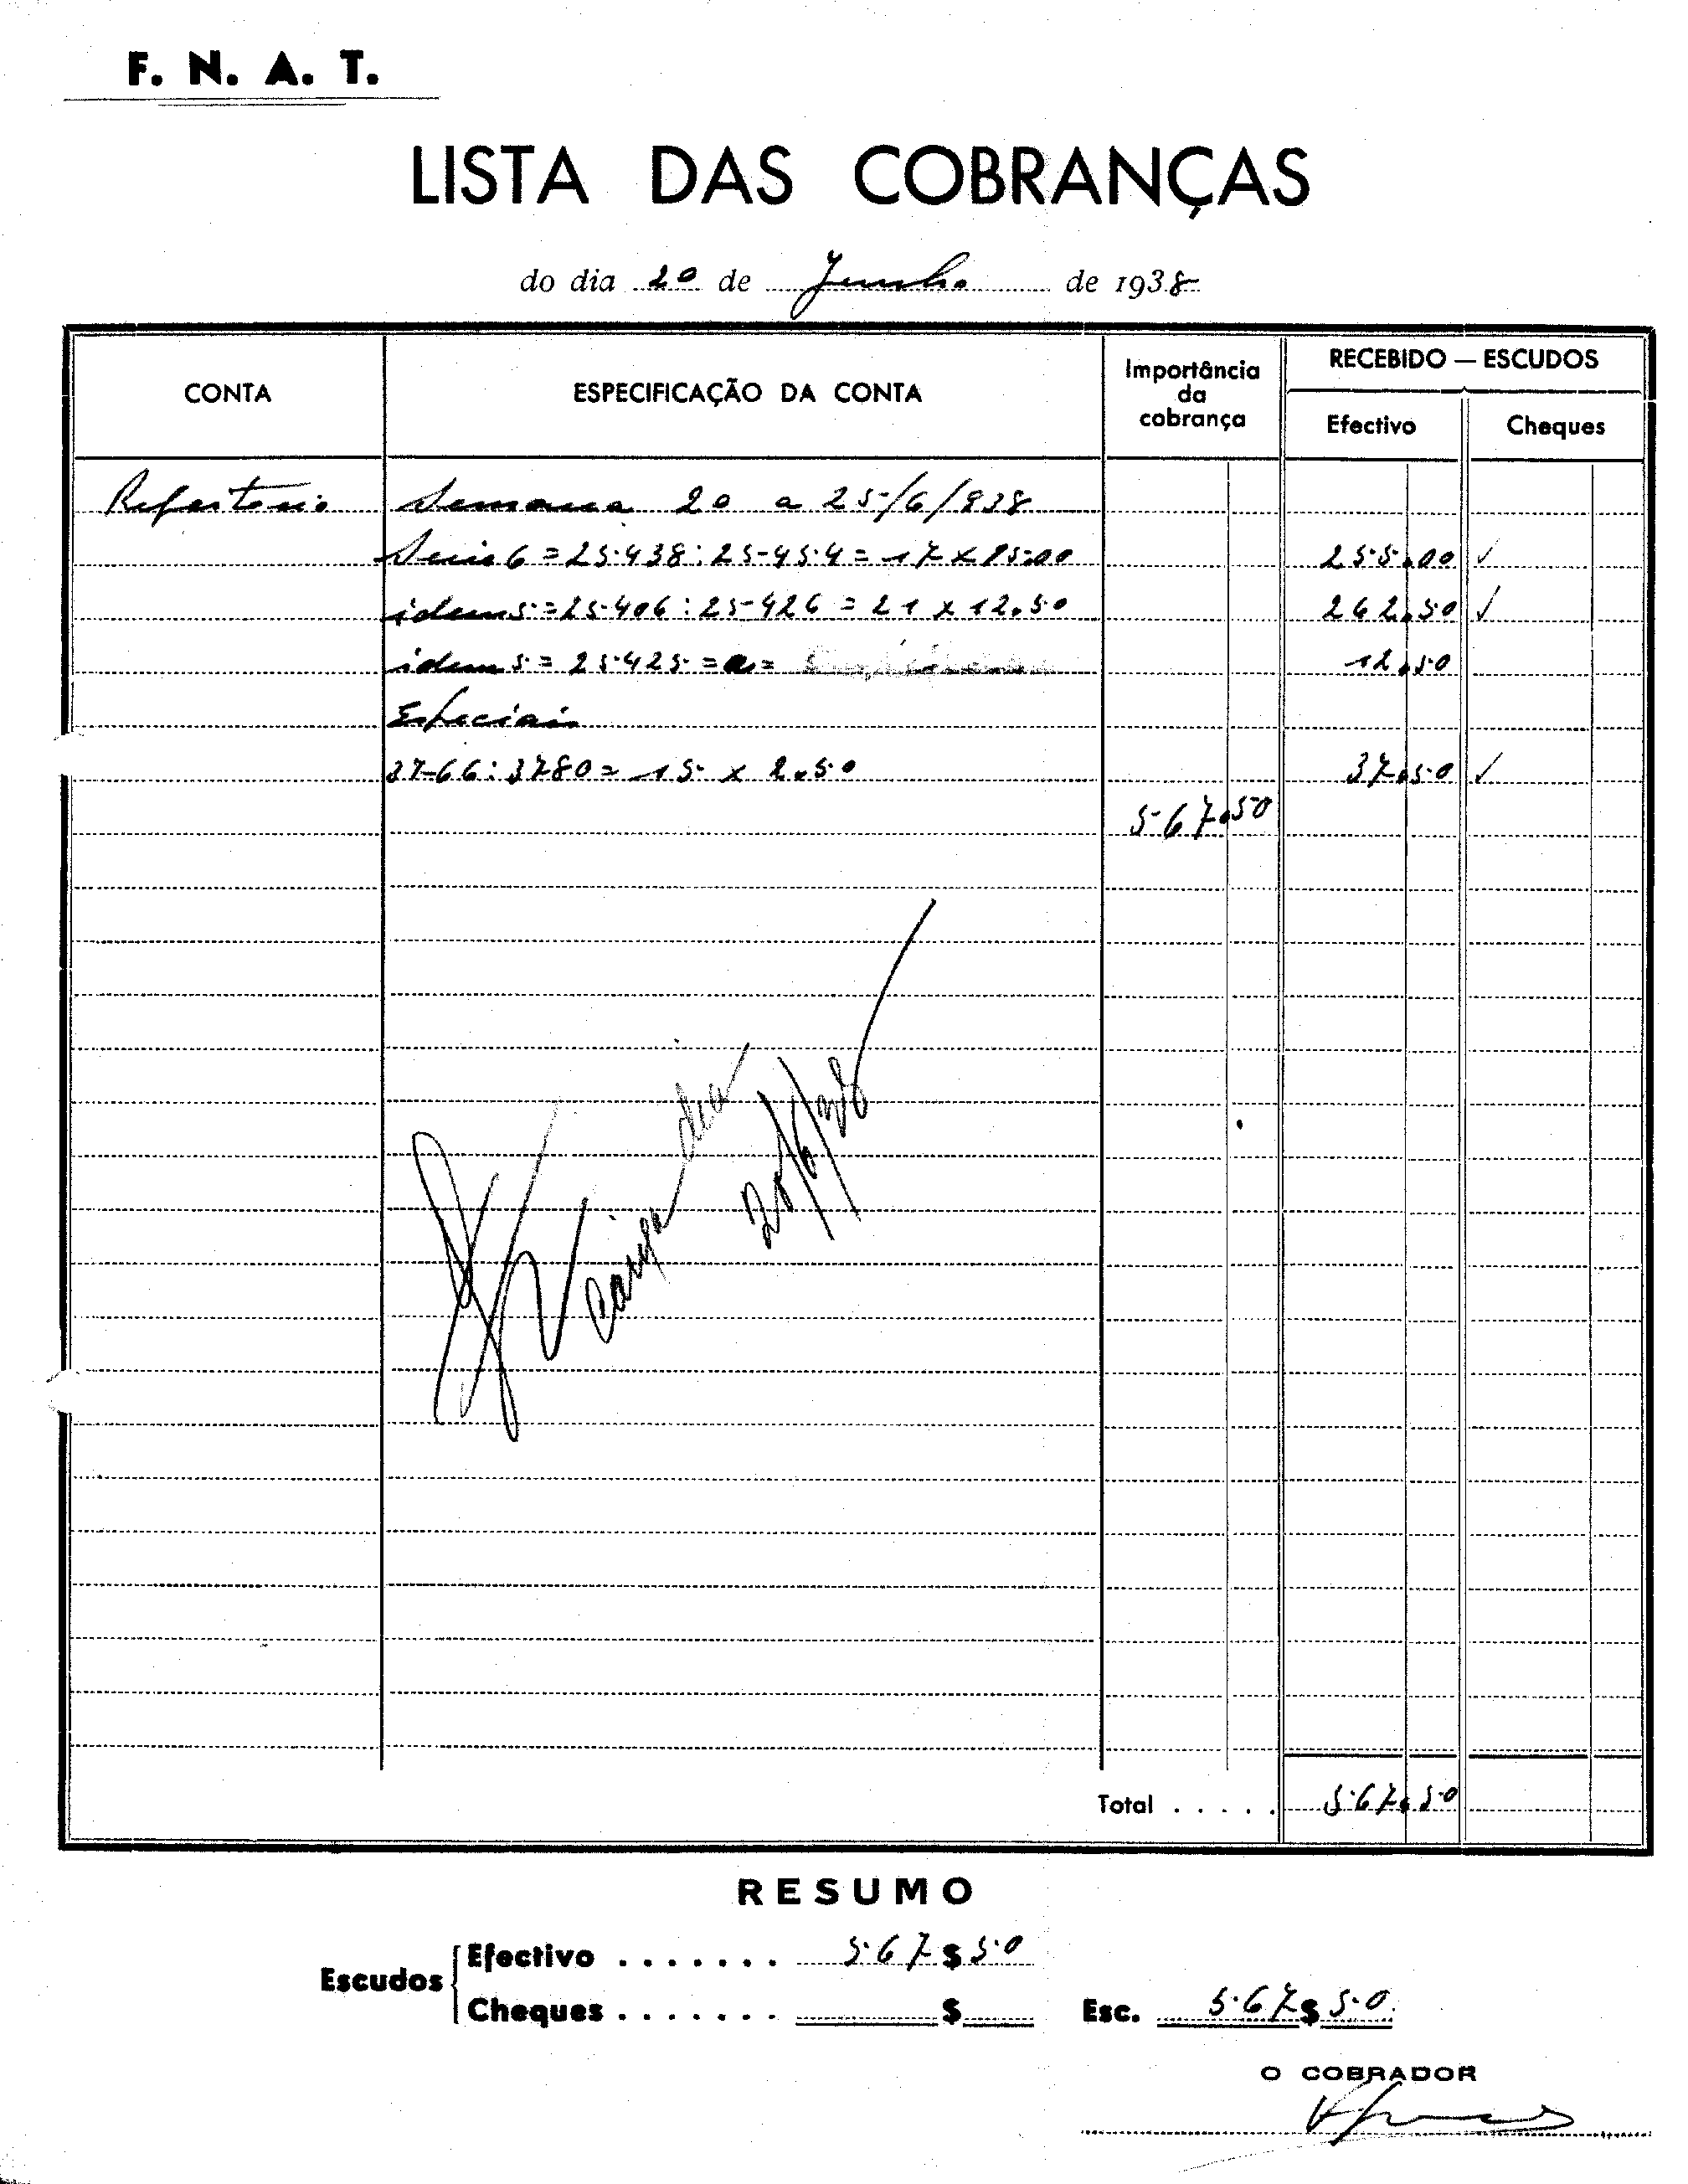 F. N. A. T.
LISTA DAS COBRANÇAS
do dia 20 de Junho de 1938
CONTA ESPECIFICAÇÃO DA CONTA Importância da cobrança RECEBIDO — ESCUDOS
Efectivo Cheques
Refeitorio Semana 20 a 25/6/938
Serie 6 = 25.438 : 25-454 = 17 x 15.00 255.00 ✓
idem 5 = 25.406 : 25-426 = 21 x 12.50 262.50 ✓
idem 5 = 25.425 = a = 12.50
Especiais
37-66 : 3780 = 15 x 2.50 37.50 ✓
567.50
Caixa dia 20/6/38
Total . . . . . 567.50
RESUMO
Escudos Efectivo . . . . . . . 567$50
Cheques . . . . . . . $ Esc. 567$50
O COBRADOR